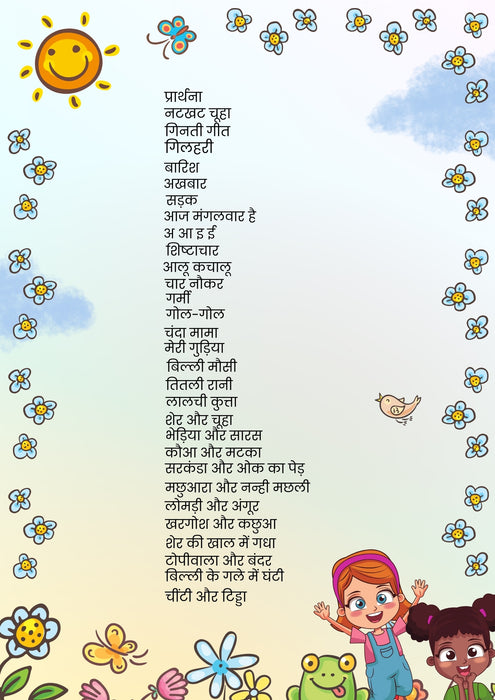 प्रार्थना
नटखट चूहा
गिनती गीत
गिलहरी
बारिश
अखबार
सड़क
आज मंगलवार है
अ आ इ ई
शिष्टाचार
आलू कचालू
चार नौकर
गर्मी
गोल-गोल
चंदा मामा
मेरी गुड़िया
बिल्ली मौसी
तितली रानी
लालची कुत्ता
शेर और चूहा
भेड़िया और सारस
कौआ और मटका
सरकंडा और ओक का पेड़
मछुआरा और नन्ही मछली
लोमड़ी और अंगूर
खरगोश और कछुआ
शेर की खाल में गधा
टोपीवाला और बंदर
बिल्ली के गले में घंटी
चींटी और टिड्डा